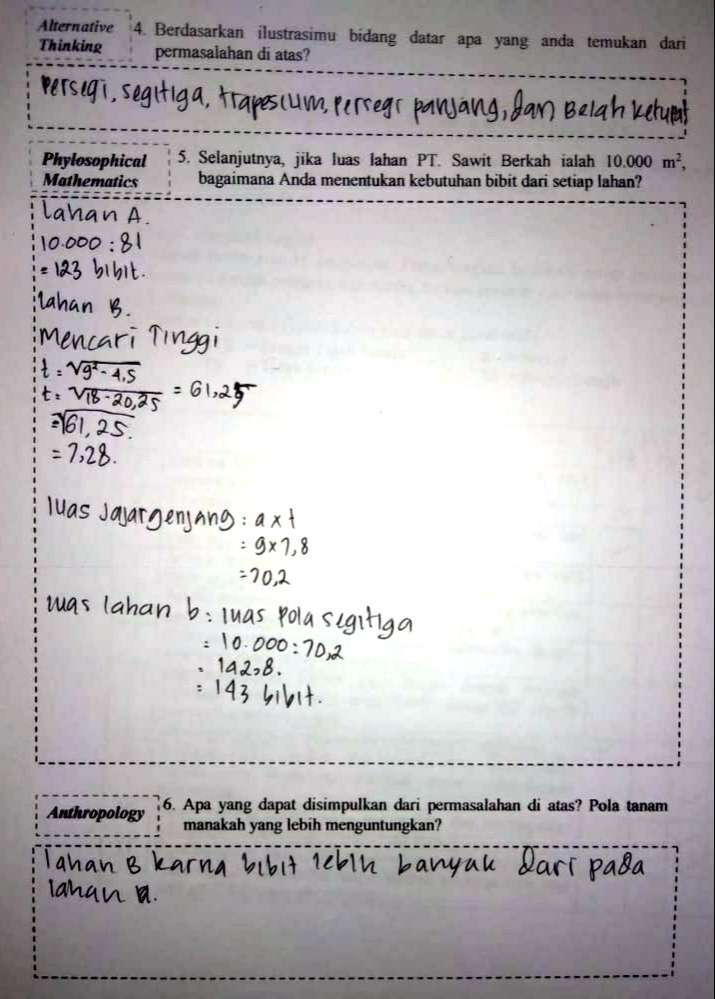 Alternative Thinking
4. Berdasarkan ilustrasimu bidang datar apa yang anda temukan dari
permasalahan di atas?
Persegi, segitiga, trapesium, persegi panjang, dan Belah ketupat
Phylosophical Mathematics
5. Selanjutnya, jika luas lahan PT. Sawit Berkah ialah 10.000 m²,
bagaimana Anda menentukan kebutuhan bibit dari setiap lahan?
Lahan A.
10.000 : 81
= 123 bibit.
Lahan B.
Mencari Tinggi
t = √9² - 4,5
t = √18 - 20,25 = 61,25
= √61,25.
= 7,28.
luas Jajargenjang : a x t
= 9 x 7,8
= 70,2
luas lahan b : luas pola segitiga
= 10.000 : 70,2
= 142,8.
= 143 bibit.
Anthropology
6. Apa yang dapat disimpulkan dari permasalahan di atas? Pola tanam
manakah yang lebih menguntungkan?
lahan B karna bibit lebih banyak dari pada
lahan a.